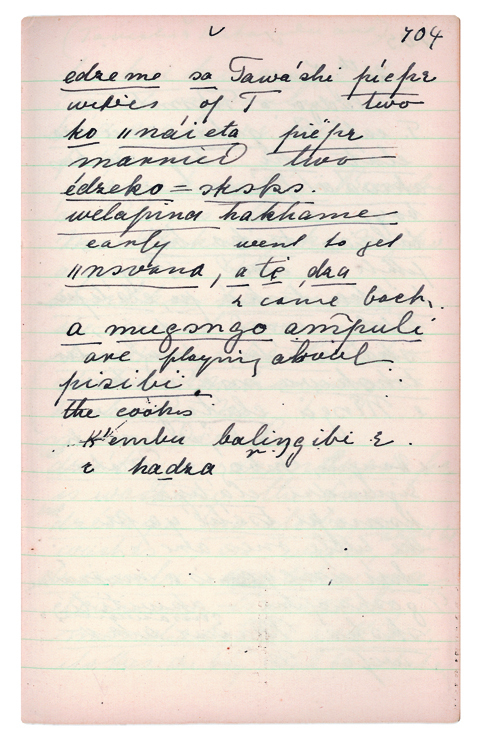 704
edzeme sa Tawáshi píepε
wives of T two
ko ǁnáíeta piëpε
married two
édzeko = sksks.
welapina hakhame
early went to get
ǁnsvana, a tẹ dza
& come back.
a mugongo ampuli
are playing about
pisibii.
the cookies
K'embu balingibi ε.
ι hadza